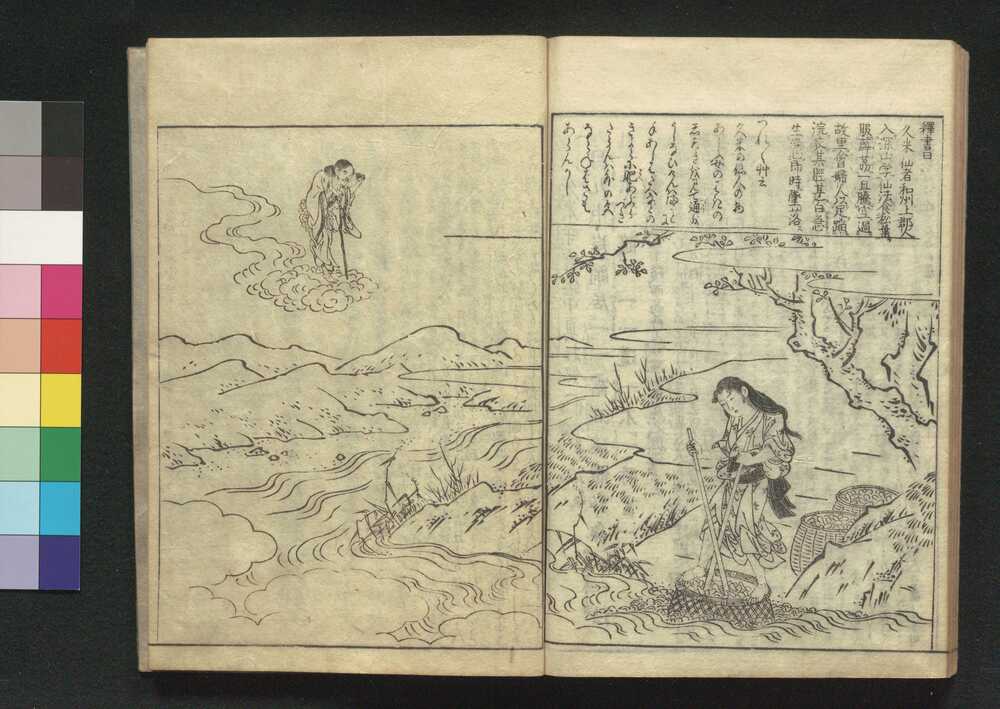 釋書曰
久米仙者和州上郡人
入深山学仙法食松葉
服薜茘一旦騰空過
故里會婦人以足踏
浣衣其脛甚白忽
生染心即時墜落
つれ〱艸云
久米の仙人の物
あらふ女のはぎの
しろきを見て通を
うしなひけんはまことに
手あしはだへなどの
きよらに肥あぶらづき
たらんは外の色
ならねばさも
あらんかし